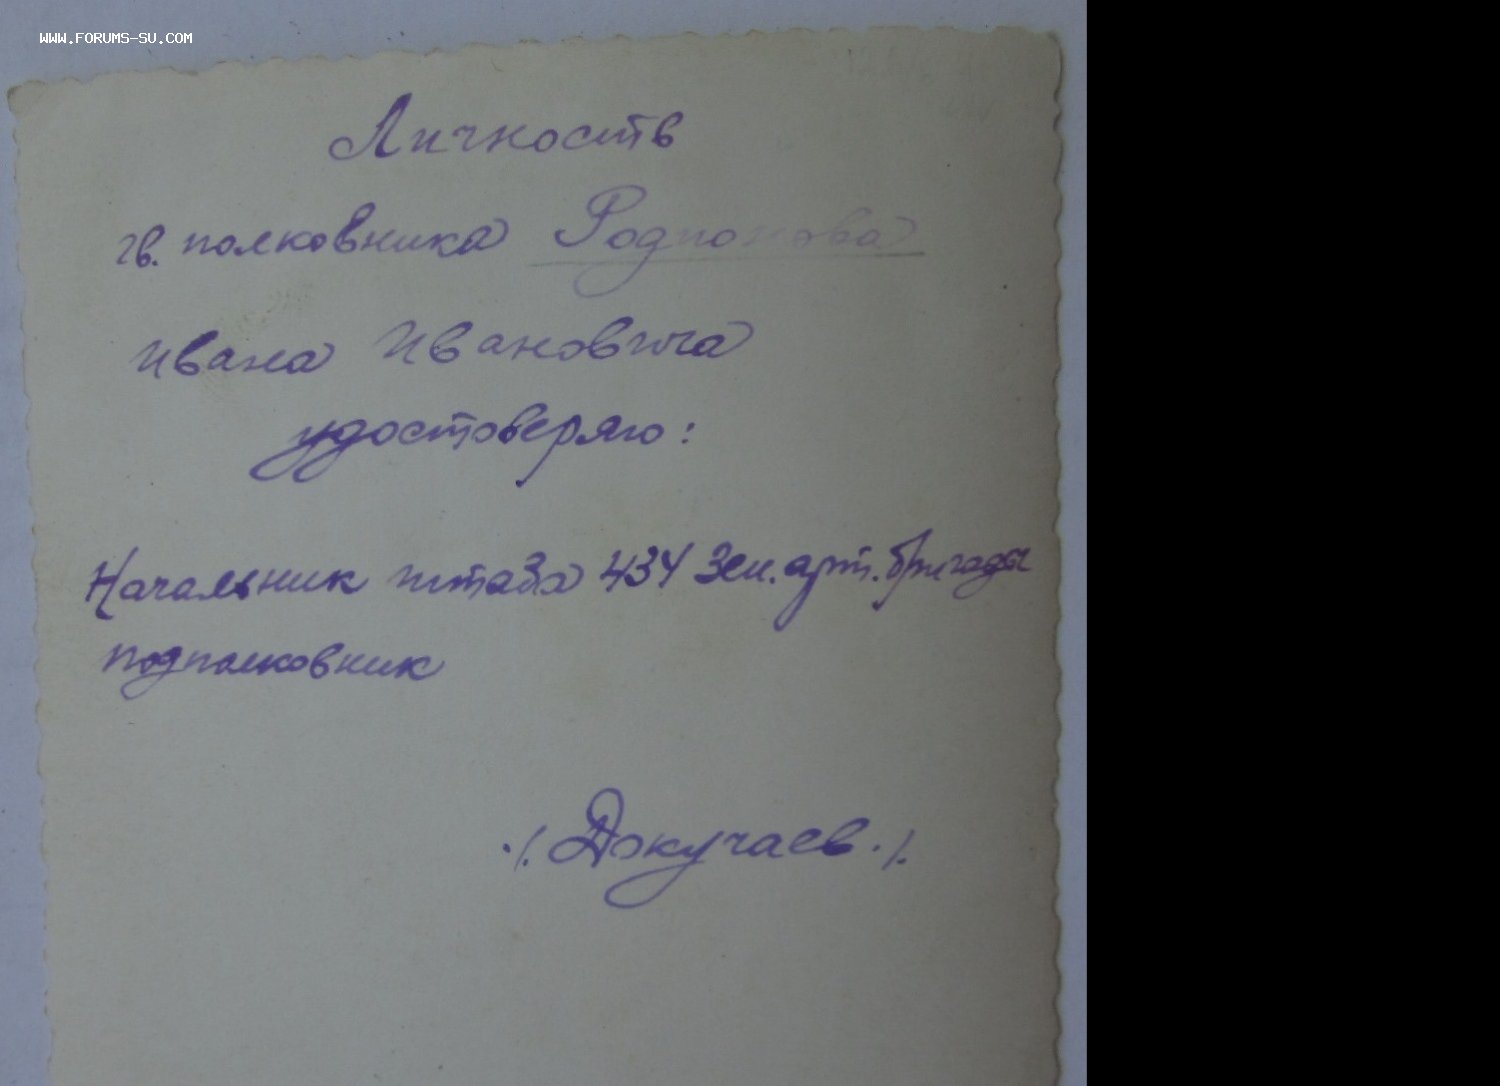 WWW.FORUMS-SU.COM
Личность
гв. полковника Родионова
Ивана Ивановича
удостоверяю:
Начальник штаба 434 Зен. арт. бригады
подполковник
./. Докучаев ./.